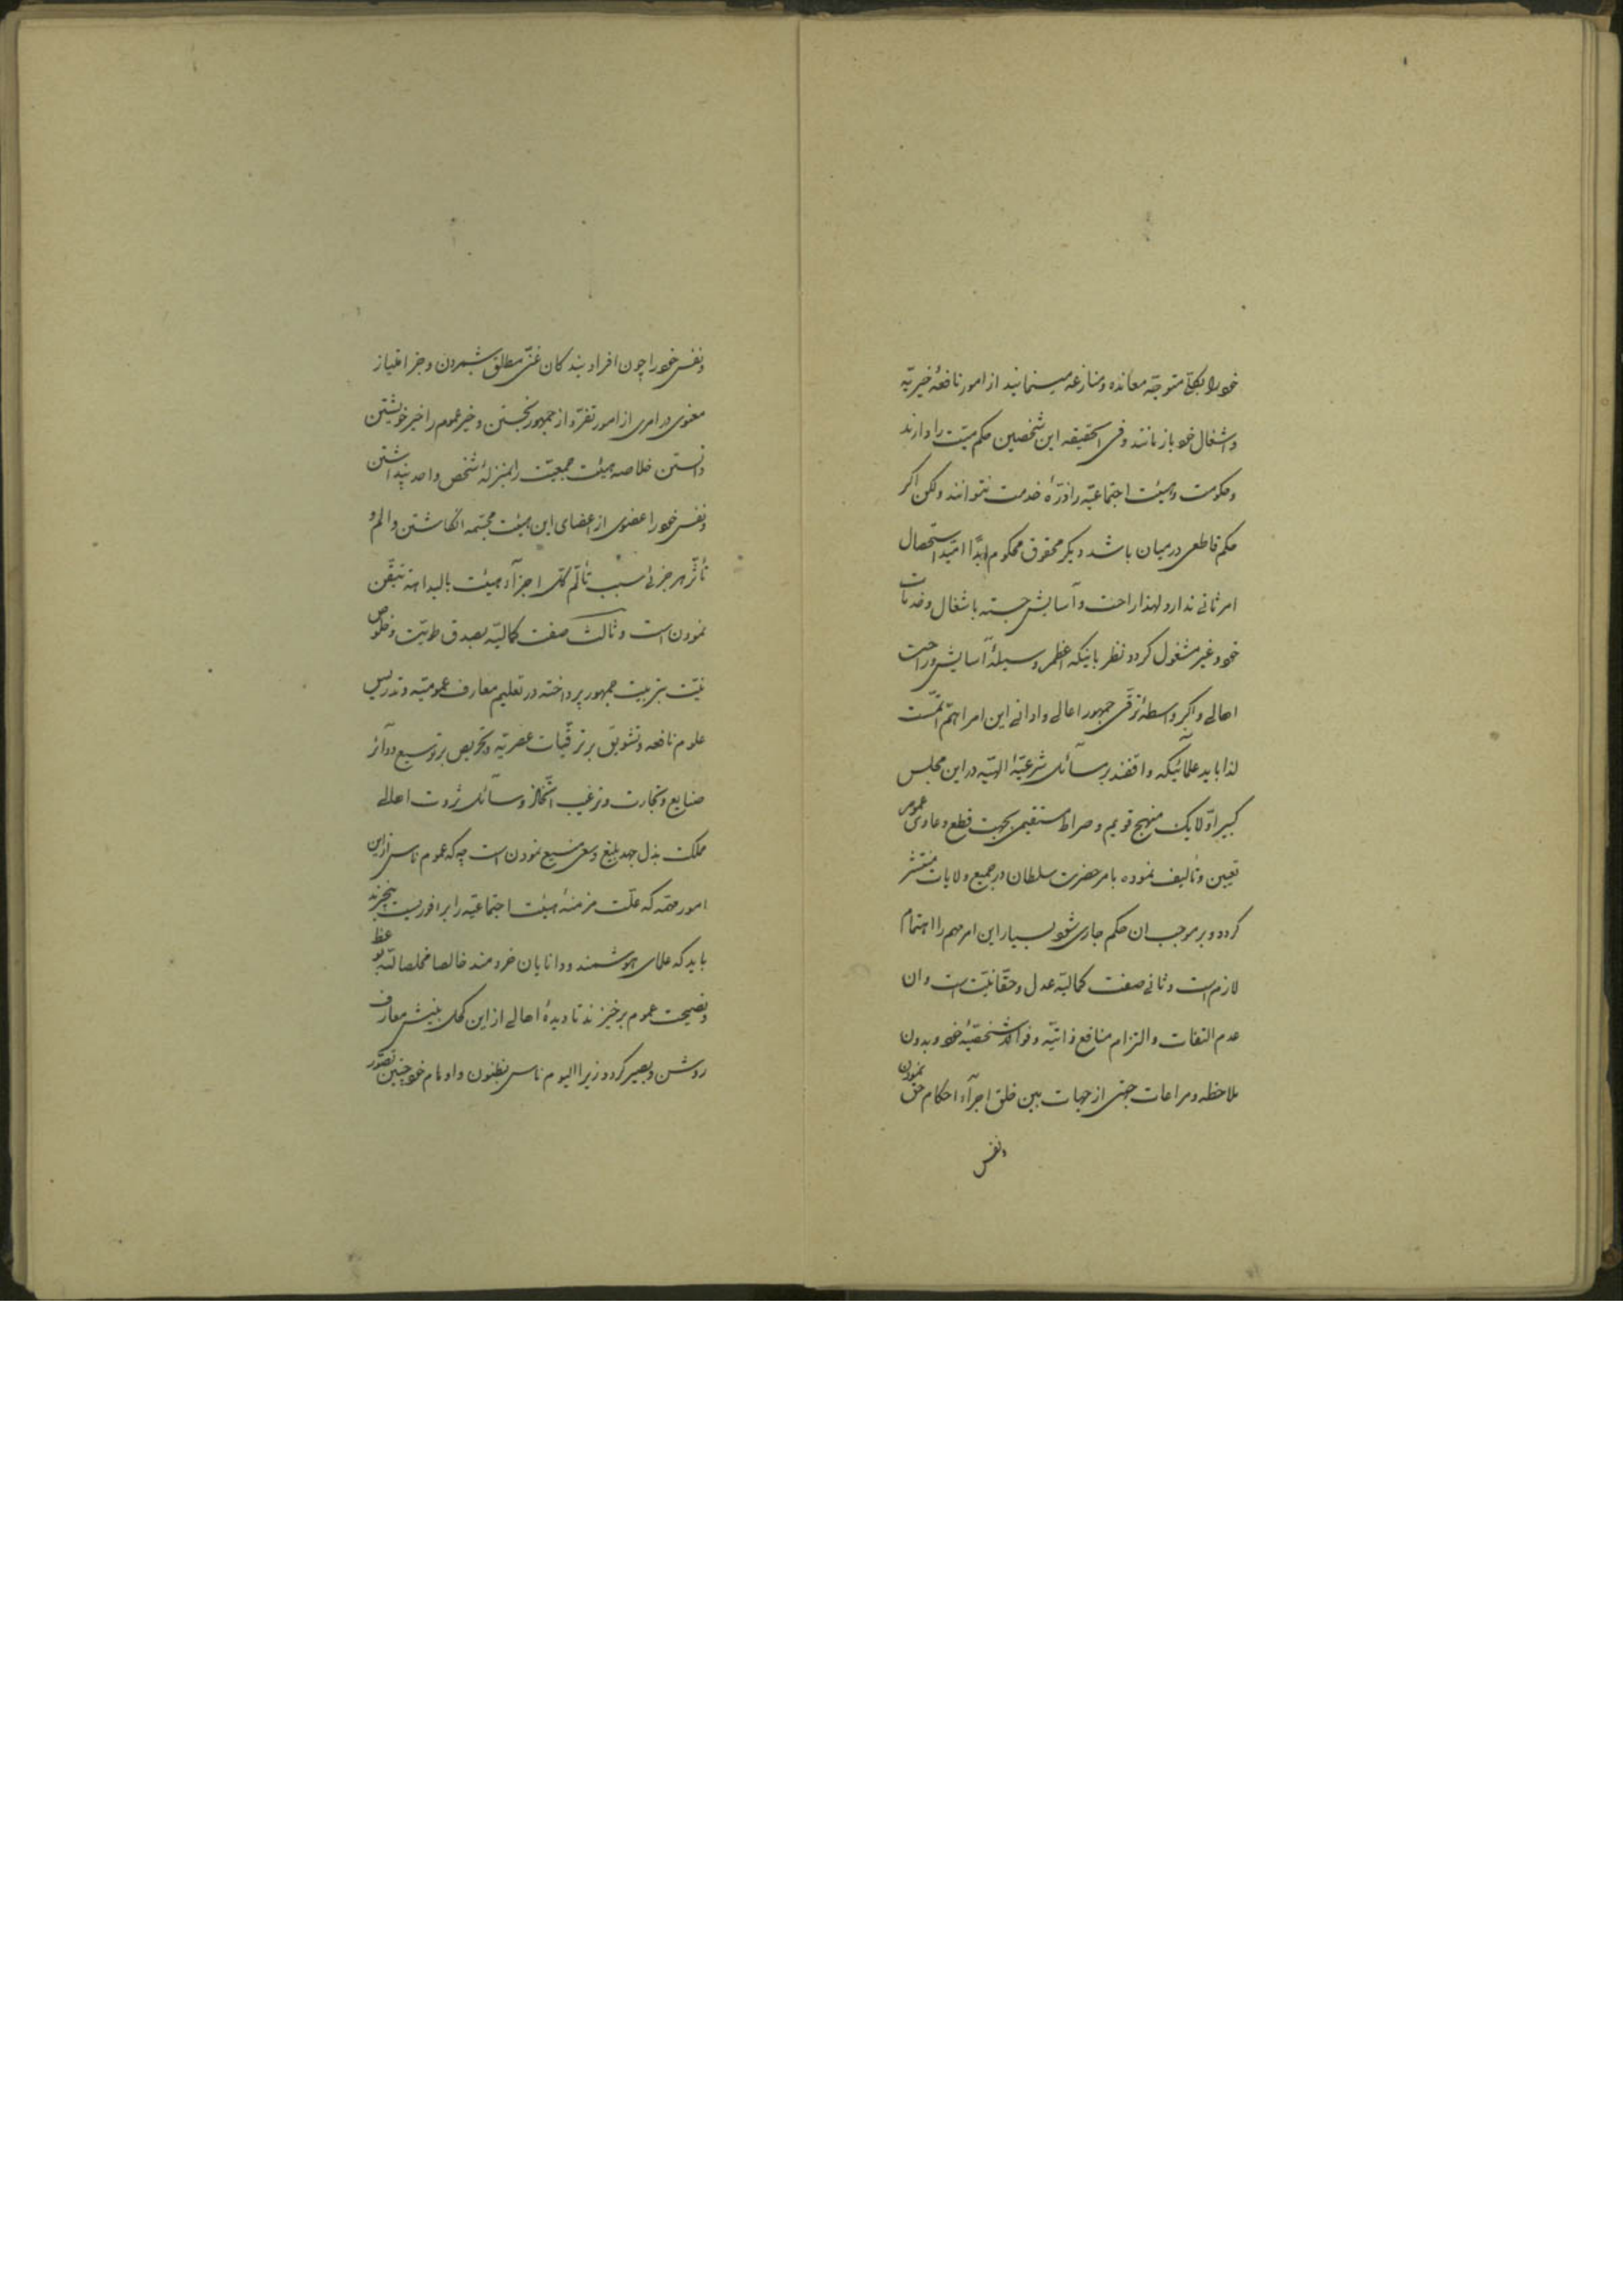 خود را بکلی متوجه معانده و منازعه مینمایند از امور نافعهٔ خیریّه
و اشغال خود باز مانند و فی الحقیقه این شخصین حکم میّت را دارند
و حکومت و هیئت اجتماعیّه را ذرّهٔ خدمت نتوانند ولکن اکر
حکم قاطعی درمیان باشد دیکر محقوق محکوم ابدًا امّید استحصال
امر ثانی ندارد لهذا راحت و آسایش جسته باشغال و خدمات
خود و غیر مشغول کردد نظر باینکه اعظم وسیلهٔ آسایش و راحت
اهالی و اکبر واسطهٔ ترقّی جمهور اعالی و ادانی این امر اهمّ اتمّست
لذا باید علمائیکه واقفند بر مسائل شرعیّهٔ الهیّه در این مجلس
کبیر اوّلا یک منهج قویم و صراط مستقیمی بجهت قطع دعاوی عموم
تعیین و تألیف نموده بامر حضرت سلطان در جمیع ولایات منتشر
کردد و بر موجب ان حکم جاری شود بسیار این امر مهم را اهتمام
لازم است و ثانی صفت کمالیّه عدل و حقّانیّت است و ان
عدم التفات و التزام منافع ذاتیّه و فوائد شخصیّهٔ خود و بدون
ملاحظه و مراعات جهتی از جهات بین خلق اجرآء احکام حق نمودن
و نفس
و نفس خود را چون افراد بندکان غنیّ مطلق شمردن و جز امتیاز
معنوی در امری از امور تفرّد از جمهور نجستن و خیر عموم را خیر خویشتن
دانستن خلاصه هیئت جمعیّت را بمنزلهٔ شخص واحد پنداشتن
و نفس خود را عضوی از اعضای این هیئت مجسّمه انکاشتن و الم و
تأثّر هر جزئی سبب تألّم کل اجزآء هیئت بالبداهة تیقّن
نمودن است و ثالث صفت کمالیّه بصدق طویّت و خلوص
نیّت بتربیت جمهور پرداخته در تعلیم معارف عمومیّه و تدریس
علوم نافعه و تشویق بر ترقّیات عصریّه و تحریص بر توسیع دوآئر
صنایع و تجارت و ترغیب اتّخاذ وسائل ثروت اهالی
مملکت بذل جهد بلیغ و سعی منیع نمودن است چه که عموم ناس از این
امور مهمّه که علّت مزمنهٔ هیئت اجتماعیّه را برء فوریست بیخبرند
باید که علمای هوشمند و دانایان خردمند خالصا مخلصا للّه بوعظ
و نصیحت عموم برخیزند تا دیدهٔ اهالی از این کحل بینش معارف
روشن و بصیر کردد زیرا الیوم ناس بظنون و اوهام خود چنین تصوّر